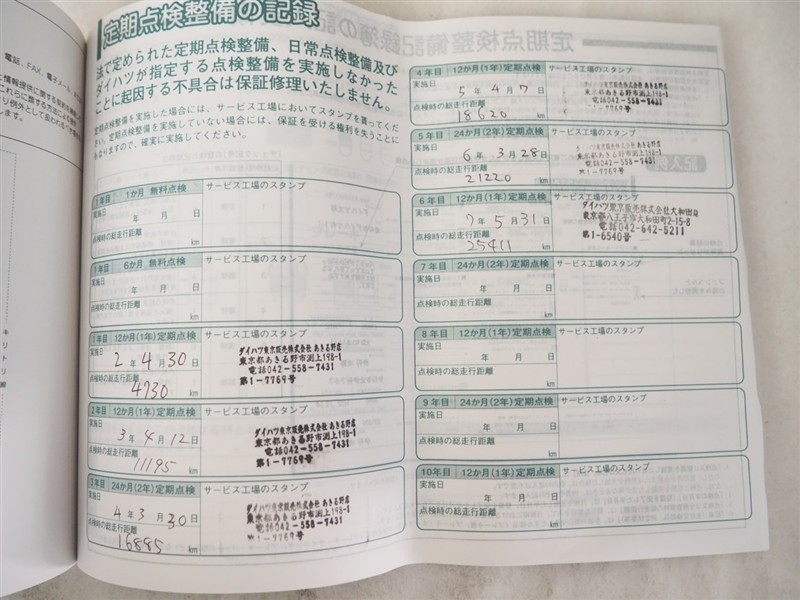 定期点検整備の記録
法で定められた定期点検整備、日常点検整備及び
ダイハツが指定する点検整備を実施しなかった
ことに起因する不具合は保証修理いたしません。
定期点検整備を実施した場合には、サービス工場においてスタンプを貰ってくだ
さい。定期点検整備を実施していない場合には、保証を受ける権利を失うことに
なりますので、確実に実施してください。
1年目 1か月 無料点検 サービス工場のスタンプ
実施日
年 月 日
点検時の総走行距離
km
1年目 6か月 無料点検 サービス工場のスタンプ
実施日
年 月 日
点検時の総走行距離
km
1年目 12か月(1年)定期点検 サービス工場のスタンプ
実施日
2年4月30日
点検時の総走行距離
4730 km
ダイハツ東京販売株式会社 あきる野店
東京都あきる野市渕上198-1
電話042-558-7431
第1-7769号
2年目 12か月(1年)定期点検 サービス工場のスタンプ
実施日
3年4月12日
点検時の総走行距離
11195 km
ダイハツ東京販売株式会社 あきる野店
東京都あきる野市渕上198-1
電話042-558-7431
第1-7769号
3年目 24か月(2年)定期点検 サービス工場のスタンプ
実施日
4年3月30日
点検時の総走行距離
16885 km
ダイハツ東京販売株式会社 あきる野店
東京都あきる野市渕上198-1
電話042-558-7431
第1-7769号
4年目 12か月(1年)定期点検 サービス工場のスタンプ
実施日
5年4月7日
点検時の総走行距離
18620 km
東京都あきる野市渕上198-1
電話042-558-7431
第1-7769号
5年目 24か月(2年)定期点検 サービス工場のスタンプ
実施日
6年3月28日
点検時の総走行距離
21220 km
東京都あきる野市渕上198-1
電話042-558-7431
第1-7769号
6年目 12か月(1年)定期点検 サービス工場のスタンプ
実施日
7年5月31日
点検時の総走行距離
25411 km
ダイハツ東京販売株式会社大和田店
東京都八王子市大和田町2-15-8
電話042-642-5211
第1-6540号
7年目 24か月(2年)定期点検 サービス工場のスタンプ
実施日
年 月 日
点検時の総走行距離
km
8年目 12か月(1年)定期点検 サービス工場のスタンプ
実施日
年 月 日
点検時の総走行距離
km
9年目 24か月(2年)定期点検 サービス工場のスタンプ
実施日
年 月 日
点検時の総走行距離
km
10年目 12か月(1年)定期点検 サービス工場のスタンプ
実施日
年 月 日
点検時の総走行距離
km